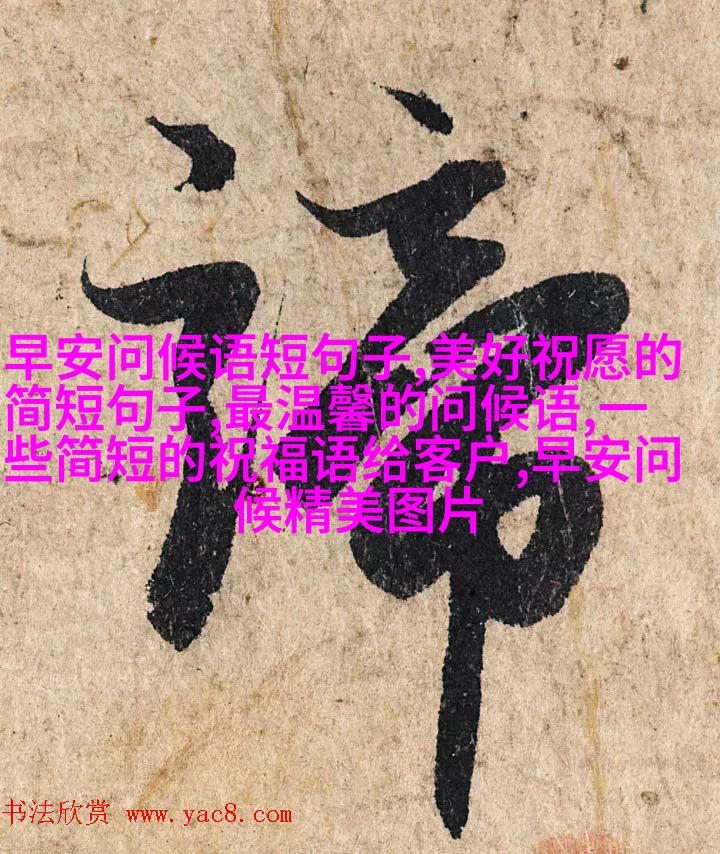 諦
早安问候语短句子,美好祝愿的
简短句子,最温馨的问候语,一
些简短的祝福语给客户,早安问
候精美图片
书法欣赏 www.yac8.com